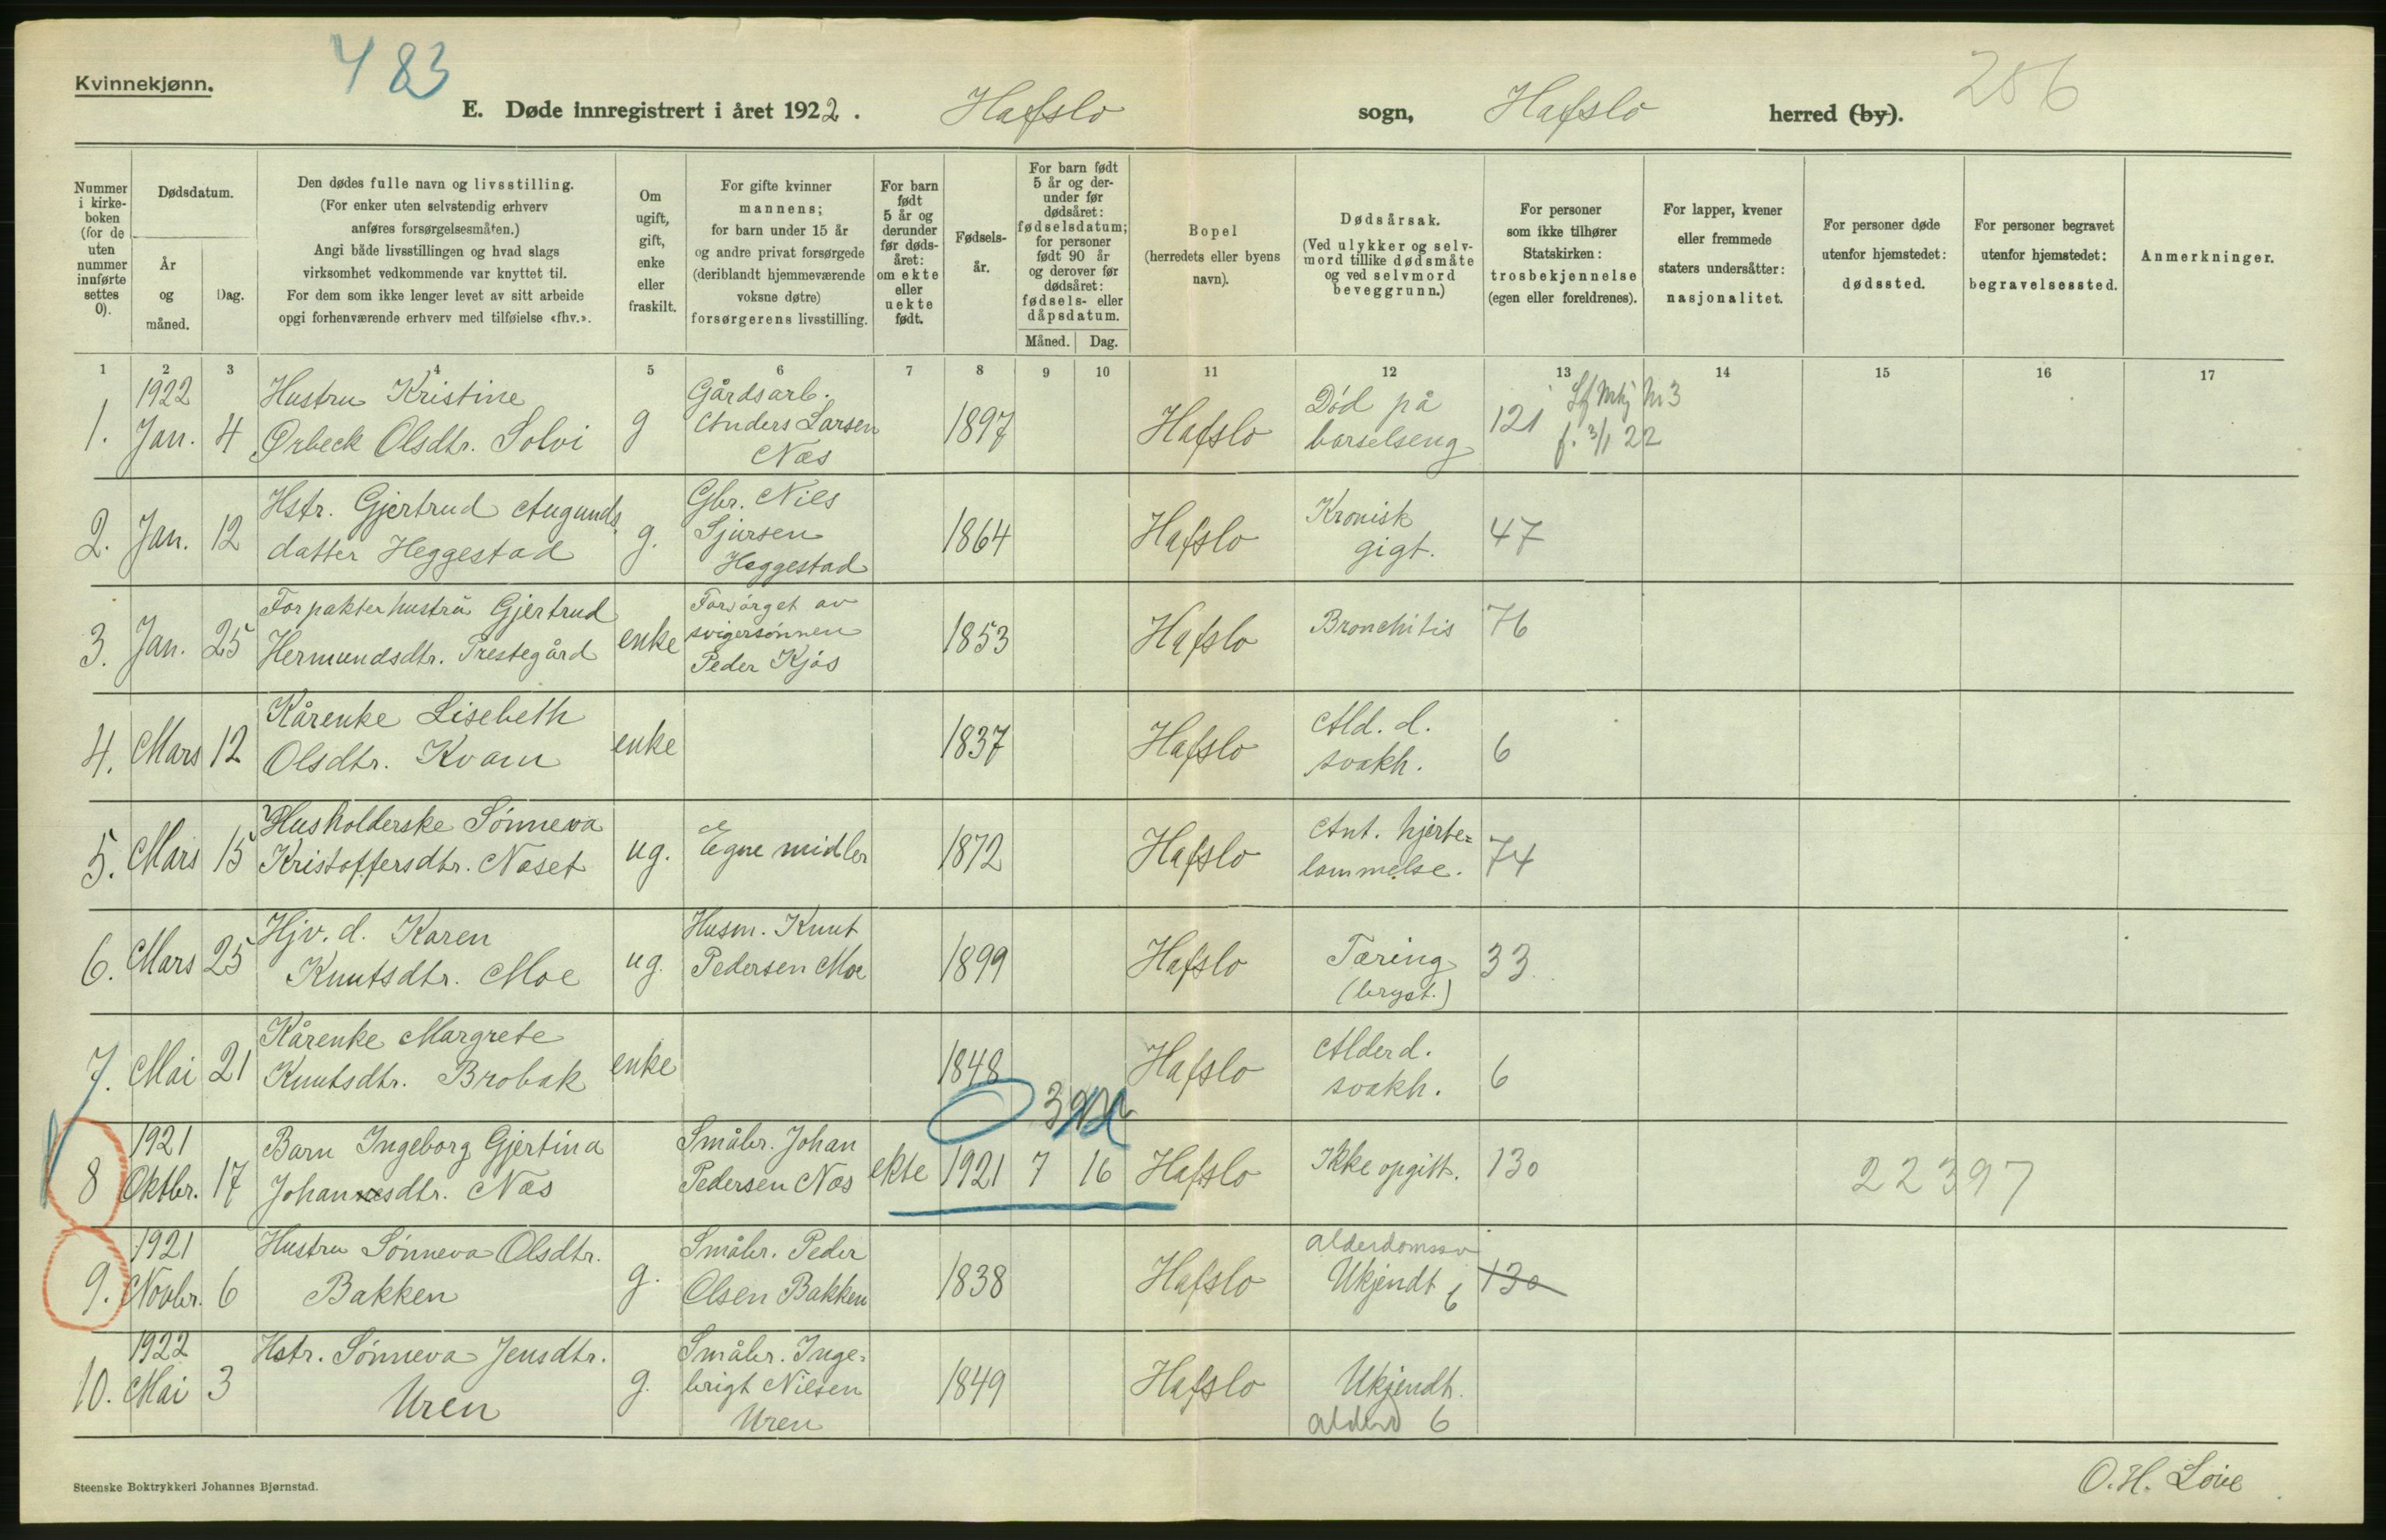 Kvinnekjønn.
483
E. Døde innregistrert i året 1922. Hafslo sogn, Hafslo herred (by).
256
Nummer i kirke-boken (for de uten nummer innførte settes 0).
Dødsdatum.
År og måned.
Dag.
Den dødes fulle navn og livsstilling.
(For enker uten selvstendig erhverv
anføres forsørgelsesmåten.)
Angi både livsstillingen og hvad slags
virksomhet vedkommende var knyttet til.
For dem som ikke lenger levet av sitt arbeide
opgi forhenværende erhverv med tilføielse «fhv.».
Om ugift, gift, enke eller fraskilt.
For gifte kvinner
mannens;
for barn under 15 år
og andre privat forsørgede
(deriblandt hjemmeværende
voksne døtre)
forsørgerens livsstilling.
For barn født 5 år og derunder før døds-året: om ekte eller uekte født.
Fødsels-år.
For barn født 5 år og der-under før dødsåret: fødselsdatum; for personer født 90 år og derover før dødsåret: fødsels- eller dåpsdatum.
Måned. Dag.
Bopel
(herredets eller byens
navn).
Dødsårsak.
(Ved ulykker og selv-
mord tillike dødsmåte
og ved selvmord
beveggrunn.)
For personer
som ikke tilhører
Statskirken:
trosbekjennelse
(egen eller foreldrenes).
For lapper, kvener
eller fremmede
staters undersåtter:
nasjonalitet.
For personer døde
utenfor hjemstedet:
dødssted.
For personer begravet
utenfor hjemstedet:
begravelsessted.
Anmerkninger.
1 2 3 4 5 6 7 8 9 10 11 12 13 14 15 16 17
1. 1922 Jan. 4 Hustru Kristine Ørbeck Olsdtr. Solvi g Gårdsarb. Anders Larsen Næs 1897 Hafslo Død på barselseng 121 Nr 3 f. 3/1 22
2. Jan. 12 Hstr. Gjertrud Augunds datter Heggestad g. Gbr. Nils Sjursen Heggestad 1864 Hafslo Kronisk gigt. 47
3. Jan. 25 Forpakterhustru Gjertrud Hermundsdtr. Prestegård enke Forsørget av svigersønnen Peder Kjøs 1853 Hafslo Bronchitis 76
4. Mars 12 Kårenke Lisebeth Olsdtr. Kvam enke 1837 Hafslo Ald. d. svakh. 6
5. Mars 15 Husholderske Sønneva Kristoffersdtr. Næset ug. Egne midler 1872 Hafslo Ant. hjerte= lammelse. 74
6. Mars 25 Hjv. d. Karen Knutsdtr. Moe ug. Husm. Knut Pedersen Moe 1899 Hafslo Tæring (bryst.) 33
7. Mai 21 Kårenke Margrete Knutsdtr. Brobak enke 1848 Hafslo Alderd. svakh. 6
8 1921 Oktbr. 17 Barn Ingeborg Gjertina Johannesdtr. Næs Småbr. Johan Pedersen Næs ekte 1921 7 16 Hafslo Ikke opgitt. 130 22397
9. 1921 Novbr. 6 Hustru Sønneva Olsdtr. Bakken g. Småbr. Peder Olsen Bakken 1838 Hafslo alderdomssv Ukjendt 6 130
10. 1922 Mai 3 Hstr. Sønneva Jensdtr. Uren g. Småbr. Inge-brigt Nilsen Uren 1849 Hafslo Ukjendt. alderd 6
Steenske Boktrykkeri Johannes Bjørnstad.
O. H. Loie